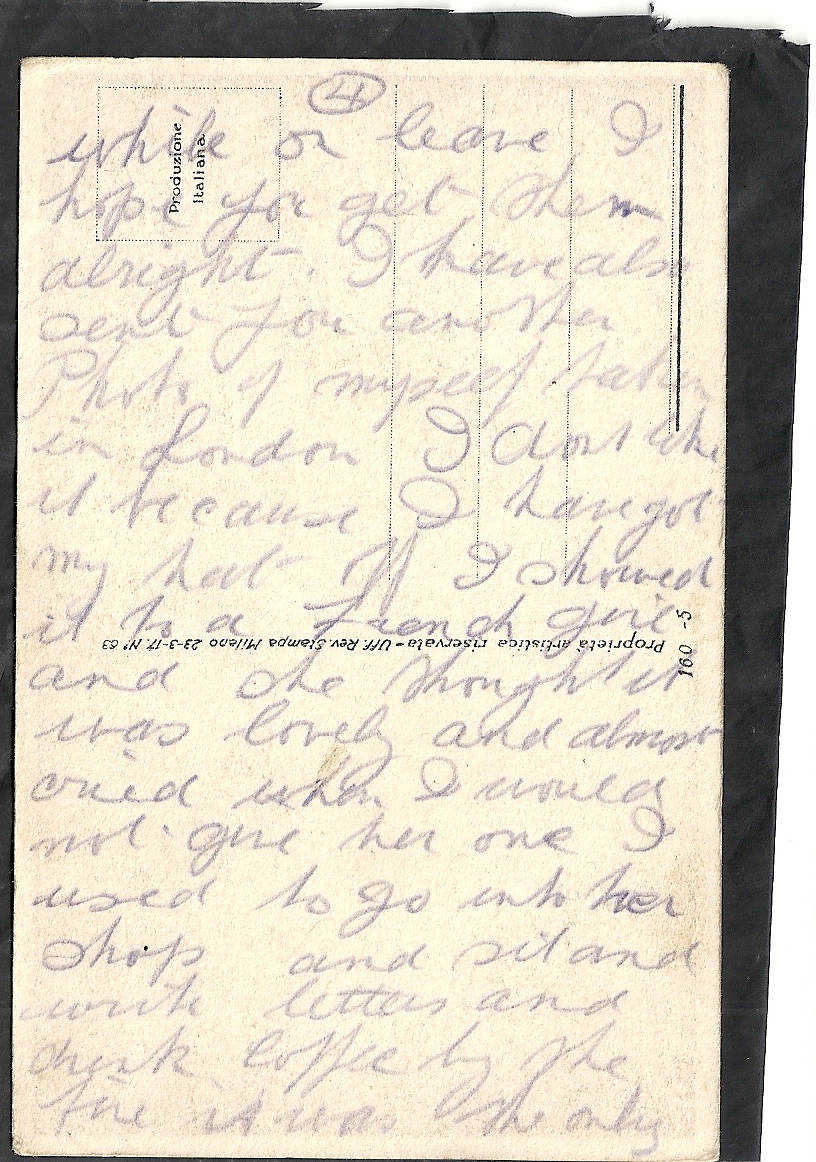 4
Produzione
Italiana.
while on leave I
hope you get them
alright. I have also
sent you another
Photo of myself taken
in London I dont like
it because I have got
my hat off I showed
it to a French girl
and she thought it
was lovely and almost
cried when I would
not give her one I
used to go into her
shop and sit and
write letters and
drink coffee by the
fire it was the only
Proprietà artistica riservata - Uff. Rev. Stampa Milano 23-3-17. N° 63
160 -5